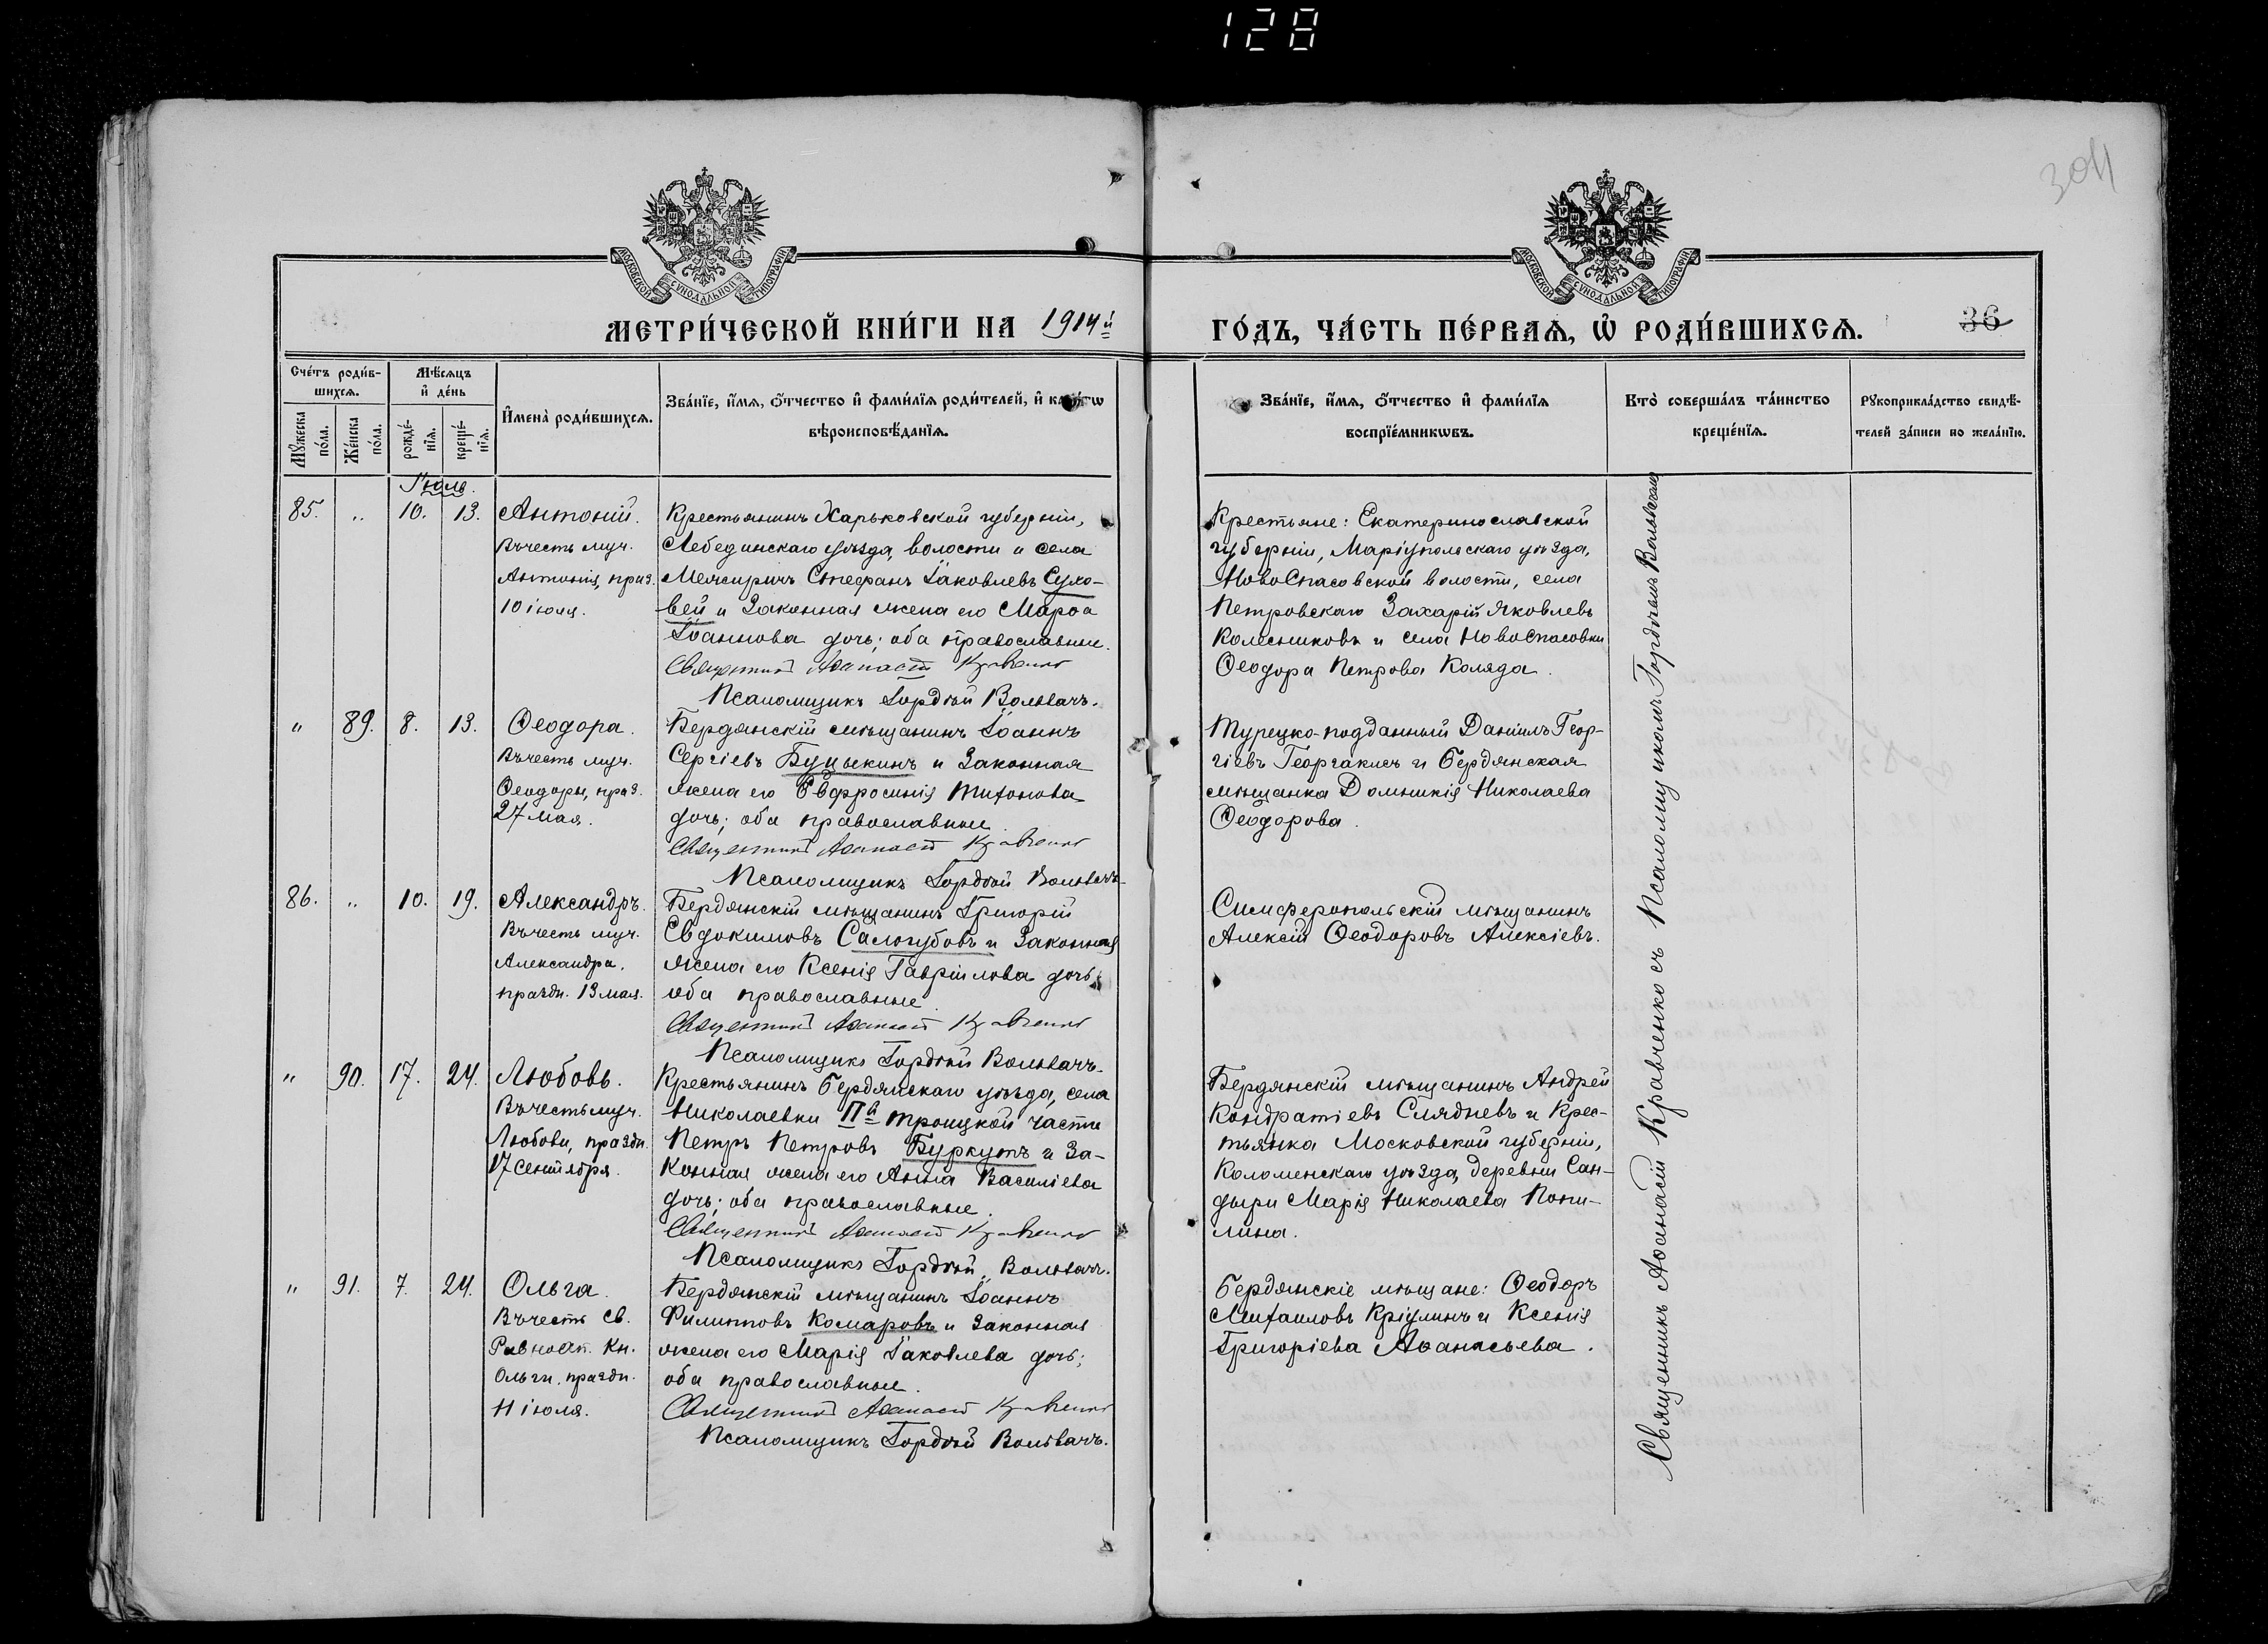 128
304
МОСКОВСКОЙ СѴНОДАЛЬНОЙ ТИПОГРАФІИ
МОСКОВСКОЙ СѴНОДАЛЬНОЙ ТИПОГРАФІИ
МЕТРИ́ЧЕСКОЙ КНИ́ГИ НА 1914й
ГО́ДЪ, ЧА́СТЬ ПЕ́РВАѦ, Ѽ РОДИ́ВШИХСѦ.
36
Сче́тъ роди́в-
шихсѧ.
Мꙋ́жеска по́ла.
Же́нска по́ла.
Мѣ́сѧцъ
и҆ де́нь
рожде́-
нїѧ.
креще́-
нїѧ.
И҆мена̀ роди́вшихсѧ.
Зва́нїе, и҆́мѧ, ѻ҆́тчество и҆ фами́лїѧ роди́телей, и҆ како́гѡ
вѣроисповѣ́данїѧ.
Зва́нїе, и҆́мѧ, ѻ҆́тчество и҆ фами́лїѧ
воспрїе́мникѡвъ.
Кто̀ соверша́лъ та́инство
креще́нїѧ.
Рꙋкоприкла́дство свидѣ́-
телей за́писи по жела́нїю.
Іюль.
85. " 10. 13. Антоній.
Въ честь муч.
Антонія, праз.
10 іюля.
Крестьянинъ Харьковской губерніи,
Лебединскаго уѣзда, волости и села
Межиричъ Стефанъ Іаковлевъ Сухо-
вей и законная жена его Марѳа
Іоаннова дочь; оба православные.
Священникъ Аѳанасій Кравченко
Псаломщикъ Гордѣй Вольвачъ.
Крестьяне: Екатеринославской
губерніи, Маріупольскаго уѣзда,
НовоСпасовской волости, села
Петровскаго Захарій Яковлевъ
Колесниковъ и села НовоСпасовки
Ѳеодора Петрова Коляда.
" 89. 8. 13. Ѳеодора.
Въ честь муч.
Ѳеодоры, праз.
27 мая.
Бердянскій мѣщанинъ Іоаннъ
Сергіевъ Буцыкинъ и законная
жена его Евфросинія Тихонова
дочь; оба православные.
Священникъ Аѳанасій Кравченко
Псаломщикъ Гордѣй Вольвачъ.
Турецко-подданный Даніилъ Геор-
гіевъ Георгаклисъ и Бердянская
мѣщанка Домникія Николаева
Ѳеодорова.
86. " 10. 19. Александръ.
Въ честь муч.
Александра.
праздн. 13 мая.
Бердянскій мѣщанинъ Григорій
Евдокимовъ Салогубовъ и законная
жена его Ксенія Гавріилова дочь;
оба православные
Священникъ Аѳанасій Кравченко
Псаломщикъ Гордѣй Вольвачъ.
Симферопольскій мѣщанинъ
Алексій Ѳеодоровъ Алексіевъ.
" 90. 17. 24. Любовь.
Въ честь муч.
Любови, праздн.
17 сентября.
Крестьянинъ Бердянскаго уѣзда, села
Николаевки IIй Троицкой части
Петръ Петровъ Буркутъ и за-
конная жена его Анна Василіева
дочь; оба православные.
Священникъ Аѳанасій Кравченко
Псаломщикъ Гордѣй Вольвачъ.
Бердянскій мѣщанинъ Андрей
Кондратіевъ Слядневъ и крес-
тьянка Московской губерніи,
Коломенскаго уѣзда, деревни Сан-
дыри Марія Николаева Попи-
лина.
" 91. 7. 24. Ольга.
Въ честь св.
Равноап. Кн.
Ольги, праздн.
11 іюля.
Бердянскій мѣщанинъ Іоаннъ
Филипповъ Комаровъ и законная
жена его Марія Іаковлева дочь;
оба православные.
Священникъ Аѳанасій Кравченко
Псаломщикъ Гордѣй Вольвачъ.
Бердянскіе мѣщане: Ѳеодоръ
Михаиловъ Кріулинъ и Ксенія
Григоріева Аѳанасьева.
Священникъ Аѳанасій Кравченко съ Псаломщикомъ Гордѣемъ Вольвачемъ